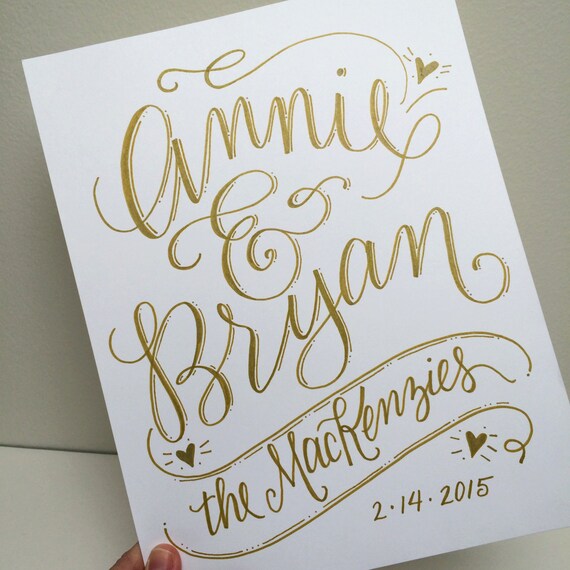 Annie
&
Bryan
the MacKenzies
2·14·2015